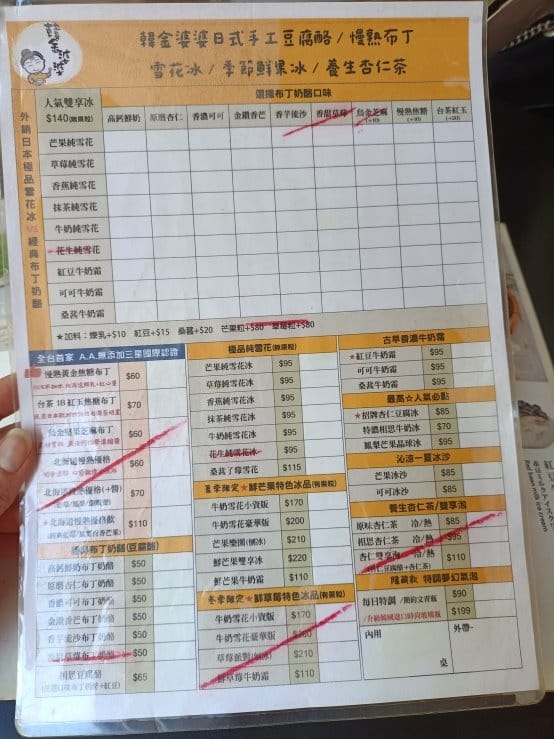 韓金婆婆
韓金婆婆日式手工豆腐酪/慢熟布丁
雪花冰/季節鮮果冰/養生杏仁茶
外銷日本極品雪花冰VS經典布丁奶酪
人氣雙享冰
$140(無果粒)
選擇布丁奶酪口味
高鈣鮮奶 原磨杏仁 香濃可可 金鑽香芒 香芋流沙 香甜草莓 烏金芝麻(+10) 慢熟焦糖(+10) 台茶紅玉(+20)
芒果純雪花
草莓純雪花
香蕉純雪花
抹茶純雪花
牛奶純雪花
花生純雪花
紅豆牛奶霜
可可牛奶霜
桑葚牛奶霜
★加料:煉乳+$10 紅豆+$15 桑葚+$20 芒果粒+$80 草莓粒+$80
全台首家 A.A.無添加三星國際認證
慢熟黃金焦糖布丁 $60
台茶18紅玉焦糖布丁 $70
烏金堅果芝麻布丁 $60
北海道慢熟優格 $60
北海道慢熟優格(+醬) $70
★北海道慢熟優格飲 $110
經典布丁奶酪(豆腐酪)
高鈣鮮奶布丁奶酪 $50
原磨杏仁布丁奶酪 $50
香濃可可布丁奶酪 $50
金鑽香芒布丁奶酪 $50
香芋流沙布丁奶酪 $50
香甜草莓布丁奶酪 $50
相思豆腐酪 $65
極品純雪花(無果粒)
芒果純雪花冰 $95
草莓純雪花冰 $95
香蕉純雪花冰 $95
抹茶純雪花冰 $95
牛奶純雪花冰 $95
花生純雪花冰 $95
桑葚了莓花冰 $115
夏季限定★鮮芒果特色冰品(有果粒)
牛奶雪花小資版 $170
牛奶雪花豪華版 $200
芒果樂園(剉冰) $210
鮮芒果雙享冰 $220
鮮芒果牛奶霜 $110
冬季限定★鮮草莓特色冰品(有果粒)
牛奶雪花小資版 $170
牛奶雪花豪華版
草莓派對(剉冰) $210
鮮草莓牛奶霜 $110
古早香濃牛奶霜
★紅豆牛奶霜 $95
可可牛奶霜 $95
桑葚牛奶霜 $95
最高☆人氣必點
★招牌杏仁豆腐冰 $85
特濃相思牛奶冰 $70
鳳梨芒果晶球冰 $95
沁涼一夏冰沙
芒果冰沙 $85
可可冰沙 $85
養生杏仁茶/雙享泡
原味杏仁茶 冷/熱 $85
相思杏仁茶 冷/熱 $95
杏仁雙享泡 冷/熱 $110
(杏仁豆腐酪+杏仁茶)
隱藏款 特調夢幻氣泡
每日特調/簡約文青瓶 $90
$199
內用 桌
外帶-